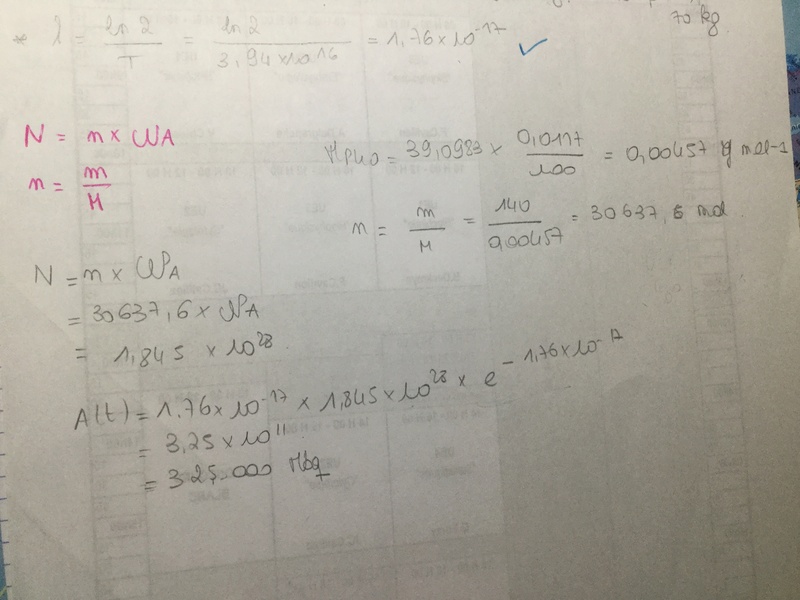 * λ = ln 2 / T = ln 2 / 3,94×10^16 = 1,76×10^-17 ✓
70 kg
N = n × NA
n = m / M
= 39,0983 × 0,0117 / 100 = 0,00457 kg mol-1
n = m / M = 140 / 0,00457 = 30637,6 mol
N = n × NA
= 30637,6 × NA
= 1,845 × 10^28
A(t) = 1,76×10^-17 × 1,845×10^28 × e^-1,76×10^-17
= 3,25×10^11
= 325.000 Mbq